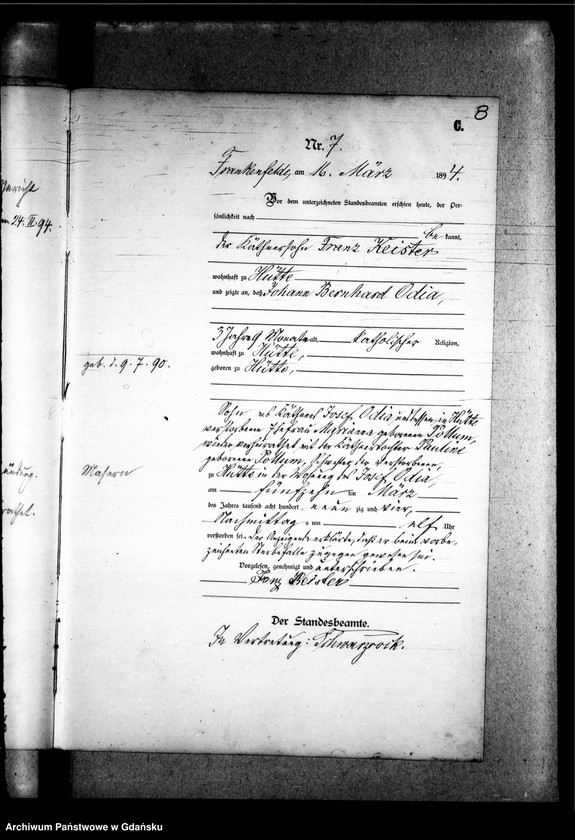 8
C.
Nr. 7.
Frankenfelde, am 16. März 1894.
Vor dem unterzeichneten Standesbeamten erschien heute, der Per-
sönlichkeit nach
be kannt,
der Käthnersohn Franz Keister
wohnhaft zu Hütte
und zeigte an, daß Johann Bernhard Odia,
3 Jahre 9 Monate alt, katholischer Religion,
wohnhaft zu Hütte,
geboren zu Hütte,
geb. d. 9. 7. 90.
Sohn des Käthners Josef Odia und dessen in Hütte
verstorbene Ehefrau Marianna geborenen Pottum,
wieder verheirathet mit der Käthnertochter Pauline
geborenen Pottum, Schwester der Verstorbenen,
zu Hütte in der Wohnung des Josef Odia,
am fünfzehn ten März
des Jahres tausend acht hundert neun zig und vier,
Nachmittags um elf Uhr
verstorben sei. Der Anzeigende erklärte, daß er beim vorbe-
zeichneten Sterbefalle zugegen gewesen sei.
Vorgelesen, genehmigt und unterschrieben.
Franz Keister
Der Standesbeamte.
In Vertretung:
Masern
24. II 94.
Archiwum Państwowe w Gdańsku